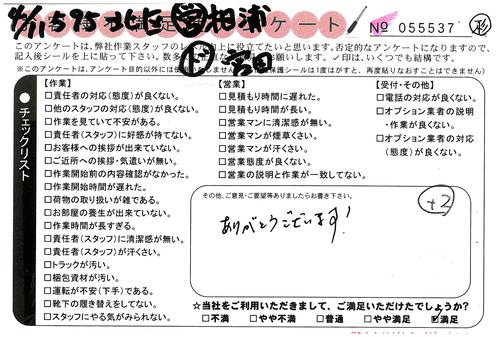 4/11 595 北上 営 相浦
ケート No 055537 杉
宮田
このアンケートは、弊社作業スタッフのレベル向上に役立てたいと思います。否定的なアンケートになりますので、
記入後シールを上に貼って下さい。数多
✓印は、いくつでも結構です。
※このアンケートは、アンケート目的以外には使用
(保護シールは1度がすと、再度貼りなおすことはできません)
●チェックリスト
【作業】
□責任者の対応(態度)が良くない。
□他のスタッフの対応(態度)が良くない。
□作業を見ていて不安がある。
□責任者(スタッフ)に好感が持てない。
□お客様への挨拶が出来ていない。
□ご近所への挨拶・気遣いが無い。
□作業開始前の内容確認がなかった。
□作業開始時間が遅れた。
□荷物の取り扱いが雑である。
□お部屋の養生が出来ていない。
□作業時間が長すぎる。
□責任者(スタッフ)に清潔感が無い。
□責任者(スタッフ)が汗くさい。
□トラックが汚い。
□梱包資材が汚い。
□運転が不安(下手)である。
□靴下の履き替えをしてない。
□スタッフにやる気がみられない。
【営業】
□見積もり時間に遅れた。
□見積もり時間が長い。
□営業マンに清潔感が無い。
□営業マンが煙草くさい。
□営業マンが汗くさい。
□営業態度が良くない。
□営業の説明と作業が一致してない。
【受付・その他】
□電話の対応が良くない。
□オプション業者の説明
・作業が良くない。
□オプション業者の対応
(態度)が良くない。
その他、ご意見・ご要望等ありましたらお書き下さい。
+2
ありがとうございます!
☆当社をご利用いただきまして、ご満足いただけたでしょうか?
□不満 □やや不満 □普通 □やや満足 ☑満足